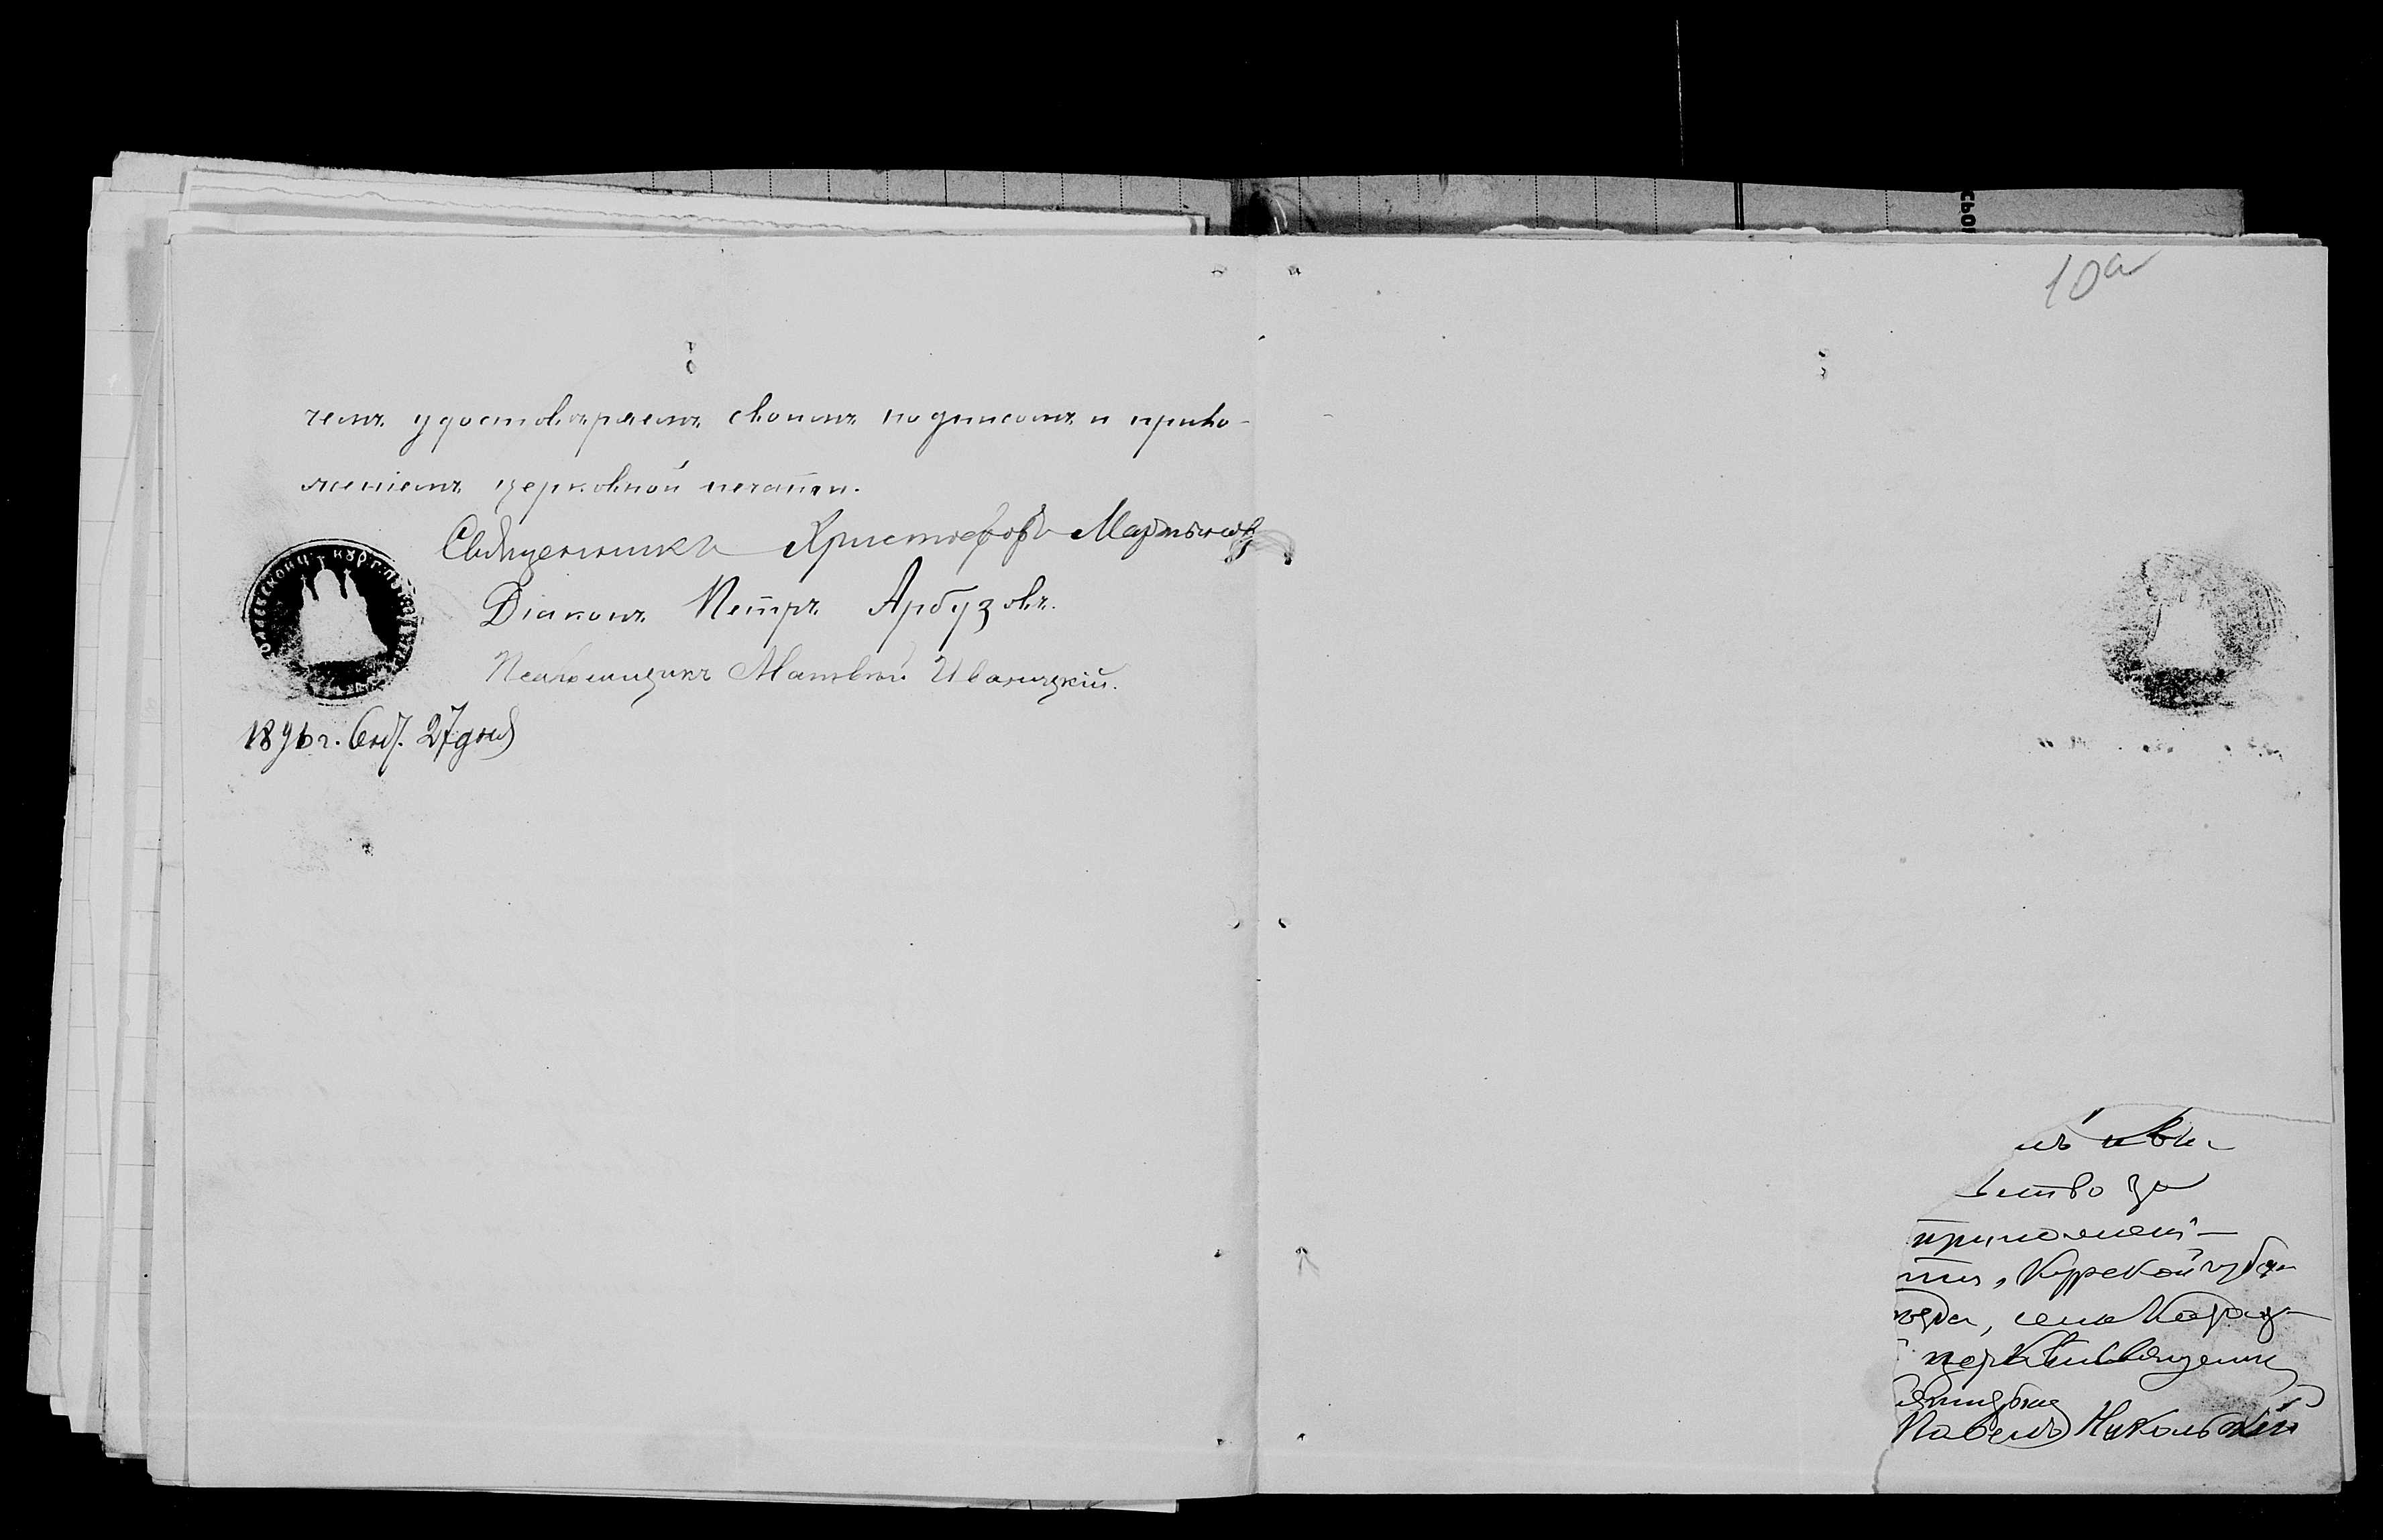 чемъ удостовѣряемъ своимъ подписомъ и прило-
женіемъ церковной печати.
Священникъ Христофоръ Мартыновъ
Діаконъ Петръ Арбузовъ.
Псаломщикъ Матвѣй Иваницкій.
1896 г. 27 дня
10а
ство за
приложен
Курской губер
уѣзда, села
церкви священник
Павелъ Никольскій